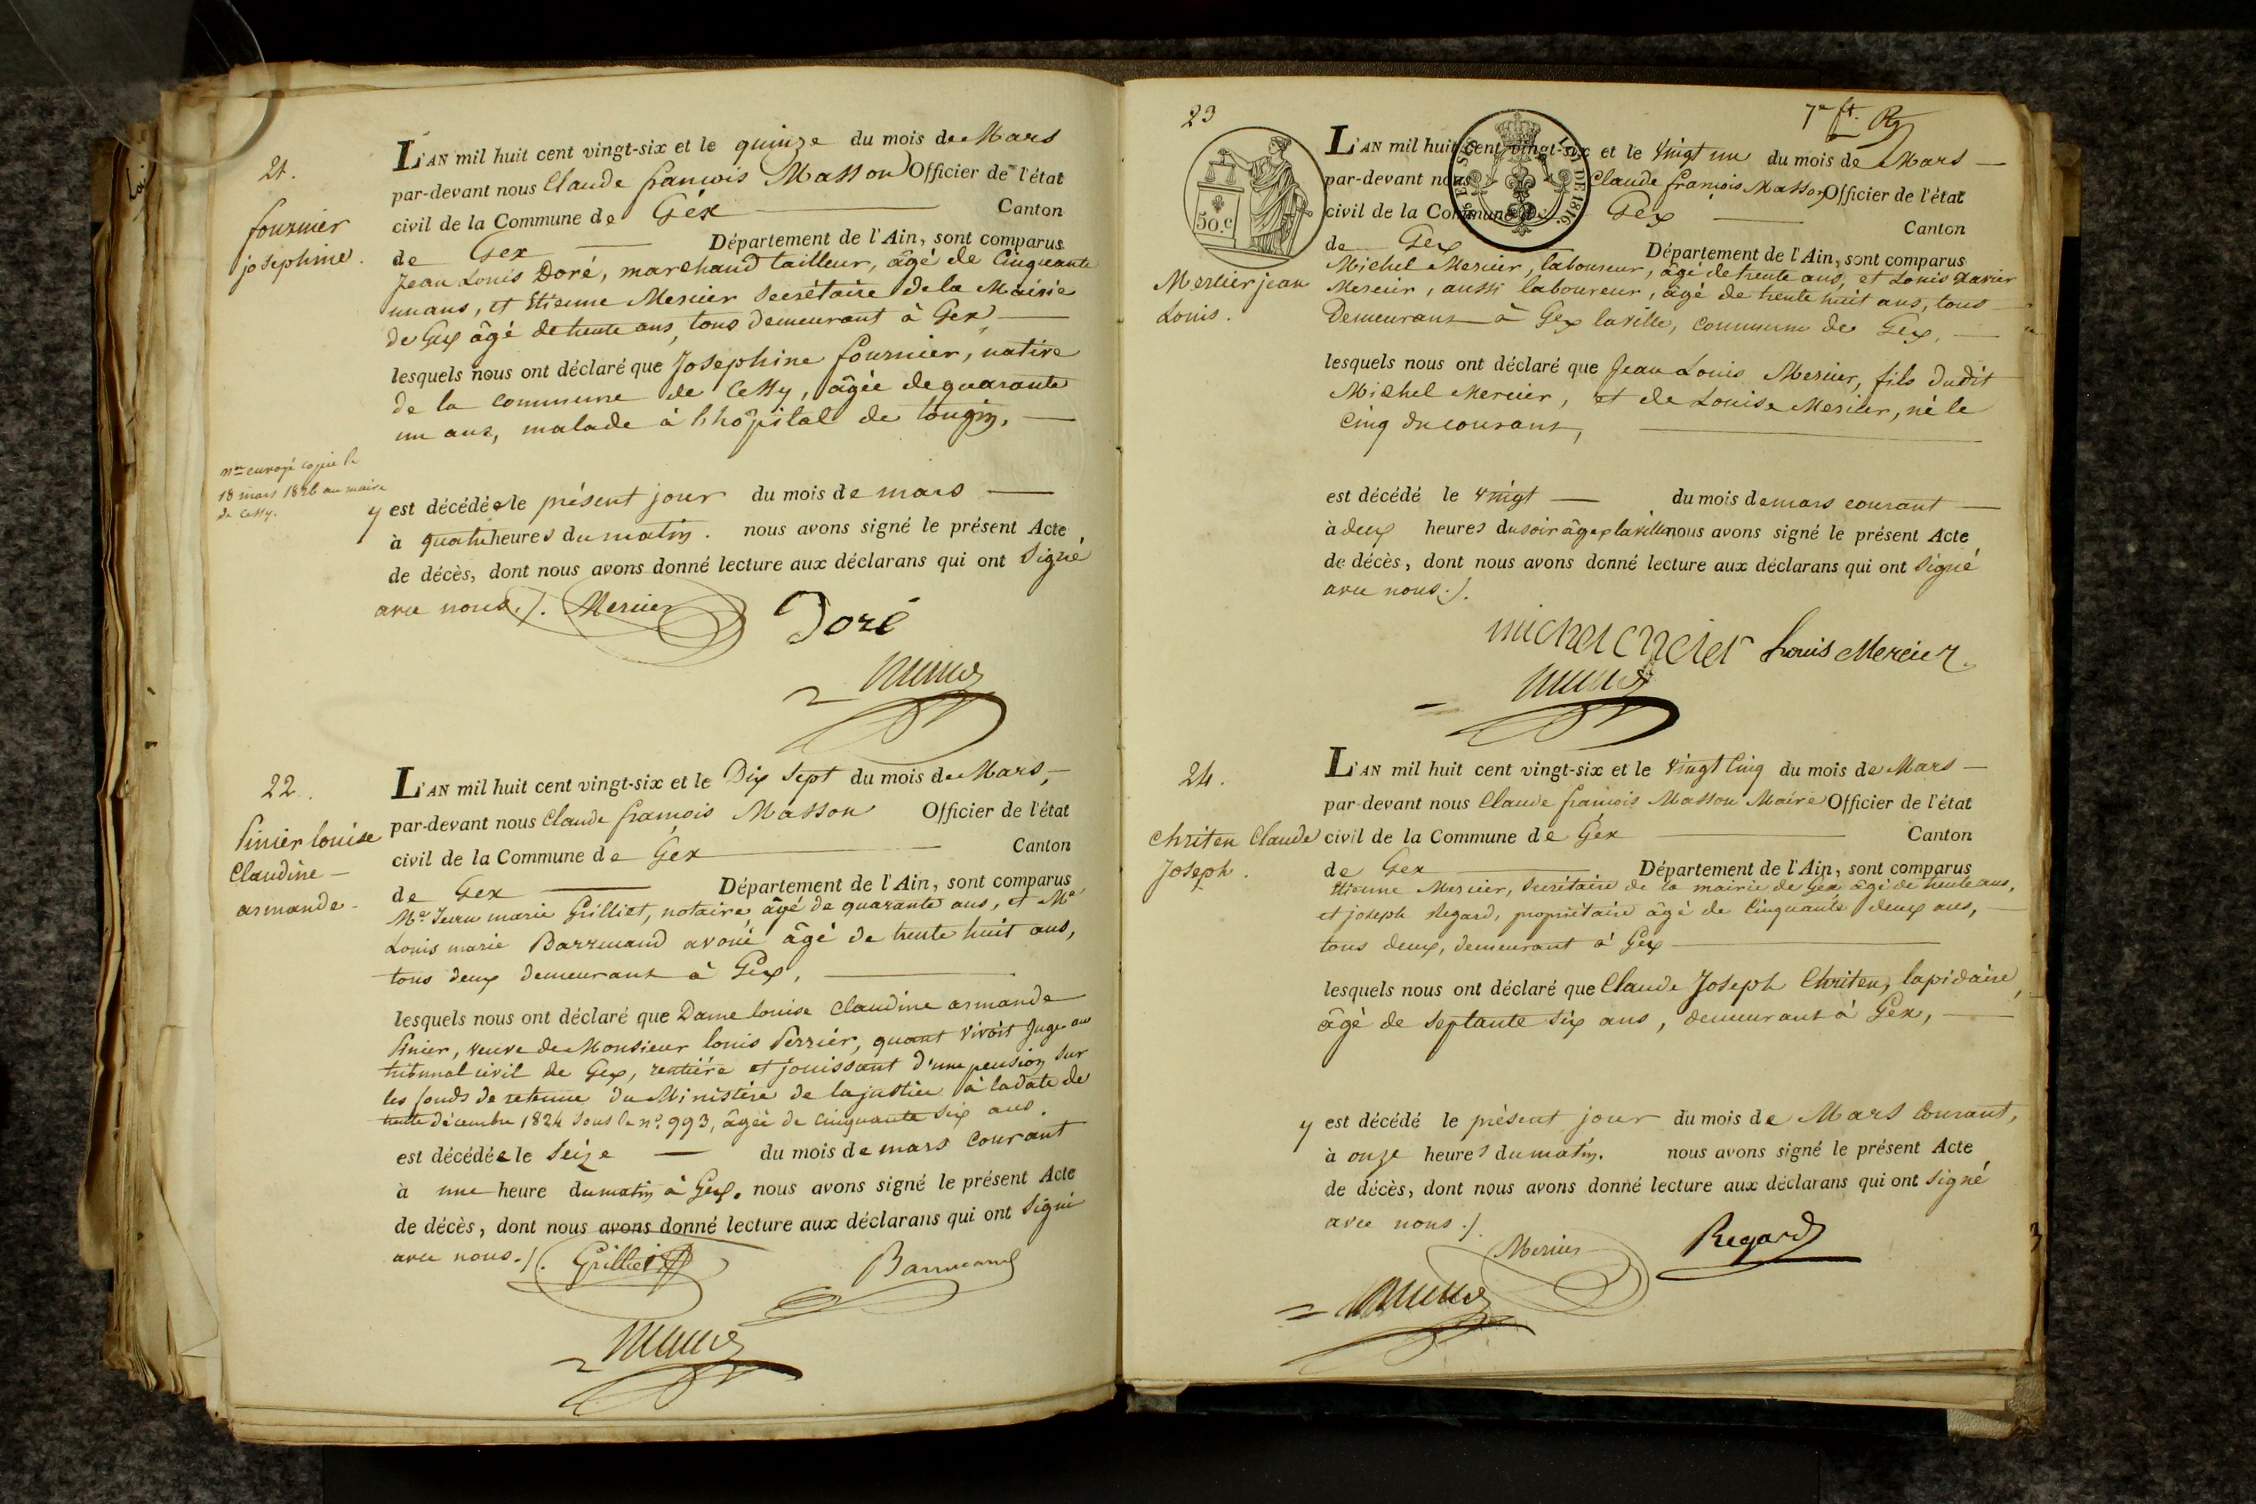 21.
fournier
josephine.
L'AN mil huit cent vingt-six et le quinze du mois de Mars
par-devant nous Claude françois Masson Officier de l'état
civil de la Commune de Gex Canton
de Gex Département de l'Ain, sont comparus
Jean Louis Doré, marchand tailleur, âgé de Cinquante
un ans, et Etienne Mercier Secrétaire de la Mairie
de Gex âgé de trente ans, tous demeurant à Gex,
lesquels nous ont déclaré que Josephine fournier, native
de la commune de Cessy, âgée de quarante
un ans, malade à l'hôpital de tougin,
nn envoyé copie le
18 mars 1826 au maire
de Cessy.
y est décédée le présent jour du mois de mars
à quatre heures du matin. nous avons signé le présent Acte
de décès, dont nous avons donné lecture aux déclarans qui ont signé
avec nous./. Mercier Doré
22.
Pinier louise
Claudine
armande
L'AN mil huit cent vingt-six et le Dix sept du mois de Mars,
par-devant nous Claude françois Masson Officier de l'état
civil de la Commune de Gex Canton
de Gex Département de l'Ain, sont comparus
Me Jean marie Grilliet, notaire, âgé de quarante ans, et Me
Louis marie Barremand avoué âgé de trente huit ans,
tous deux demeurant à Gex,
lesquels nous ont déclaré que Dame louise Claudine armande
Pinier, veuve de Monsieur louis Perrier, quant vivoit Juge au
tribunal civil de Gex, rentière et jouissant d'une pension sur
les fonds de retenue du Ministère de la justice à la date de
trente décembre 1824 sous le n° 993, âgée de cinquante six ans.
est décédée le Seize du mois de mars courant
à une heure du matin à Gex. nous avons signé le présent Acte
de décès, dont nous avons donné lecture aux déclarans qui ont signé
avec nous./. Grilliet Barremand
23
7e ft.
50.c
LOI DE 1816.
Mercier jean
Louis.
L'AN mil huit cent vingt-six et le vingt un du mois de Mars
par-devant nous Claude françois Masson Officier de l'état
civil de la Commune de Gex Canton
de Gex Département de l'Ain, sont comparus
Michel Mercier, laboureur, âgé de trente ans, et Louis Xavier
Mercier, aussi laboureur, âgé de trente huit ans, tous
Demeurant à Gex la ville, commune de Gex,
lesquels nous ont déclaré que Jean Louis Mercier, fils dudit
Michel Mercier, et de Louise Mercier, né le
Cinq du courant,
est décédé le vingt du mois de mars courant
à deux heures du soir à gex la ville nous avons signé le présent Acte
de décès, dont nous avons donné lecture aux déclarans qui ont signé
avec nous./.
Louis Mercier
24.
Chriten Claude
Joseph.
L'AN mil huit cent vingt-six et le vingt Cinq du mois de Mars
par-devant nous Claude françois Masson Maire Officier de l'état
civil de la Commune de Gex Canton
de Gex Département de l'Ain, sont comparus
Etienne Mercier, Secrétaire de la mairie de Gex âgé de trente ans,
et joseph Regard, propriétaire âgé de Cinquante deux ans,
tous deux, demeurant à Gex
lesquels nous ont déclaré que Claude Joseph Chriten, lapidaire,
âgé de septante six ans, demeurant à Gex,
y est décédé le présent jour du mois de Mars Courant,
à onze heures du matin. nous avons signé le présent Acte
de décès, dont nous avons donné lecture aux déclarans qui ont signé
avec nous./.
Mercier Regard